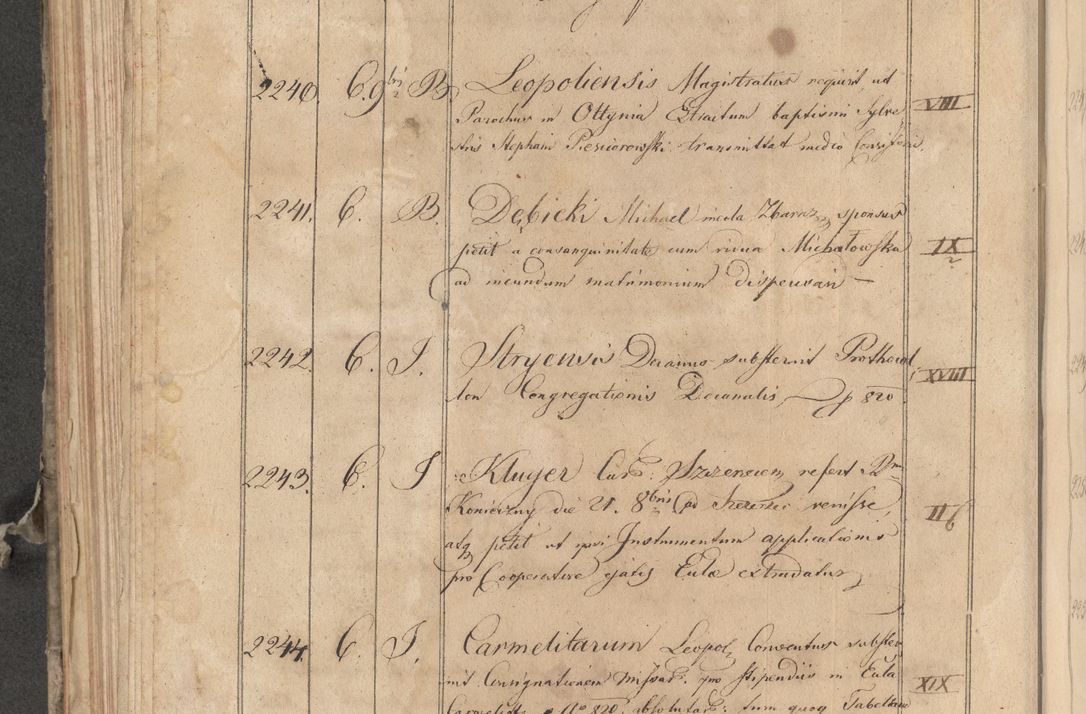 2240. 6. 9bris B. Leopoliensis Magistratus requirit, ut VIII
Parochus in Ottynia Extractum baptismi Sylve
stris Stephani Piesciorowski transmittat medio Consistorii.
2241. 6. B. Dębicki Michael incola Zbaraz, sponsus
petit a consanguinitate cum vidua Michałowska IX
ad ineundum matrimonium dispensari —
2242. 6. J. Stryensis Decanus substernit Prothocol
lon Congregationis Decanalis, p 820 XVIII
2243. 6. J Kluger Cur. Szizenciem refert Rm
Konieczny die 21. 8bris ad venisse, II
atq petit ut Instrumentum applicationis
pro Cooperatore ejatis Eulae extradatur
2244. 6. J. Carmelitarum Leopol. Conventus subster
nit Consignationem missar. pro stipendiis in Eula XIX
Carmelit. a No 820. absolutar. tum quoq Tabellam